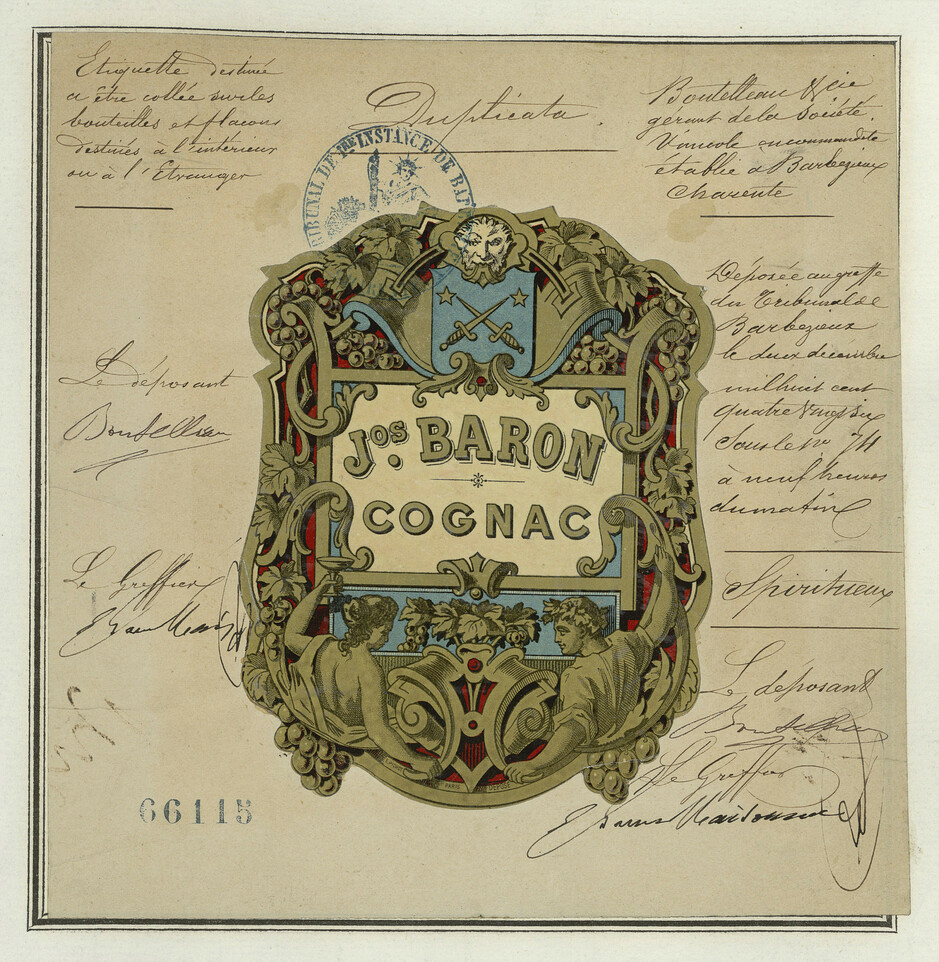 Etiquette destinée
a être collée sur les
bouteilles et flacons
destinés à l'intérieur
ou à l'Etranger
Duplicata.
Boutelleau & Cie
gérant de la Société
Vinicole en commandite
établie à Barbezieux
Charente
TRIBUNAL DE 1RE INSTANCE DE BAR
Déposée au greffe
du Tribunal de
Barbezieux
le deux décembre
mil huit cent
quatre vingt six
sous le no 74
à neuf heures
du matin
Spiritueux
Le déposant
Boutelleau
Le Greffier
JOS. BARON
COGNAC
Le déposant
Boutelleau
Le Greffier
PARIS
DÉPOSÉ
66115